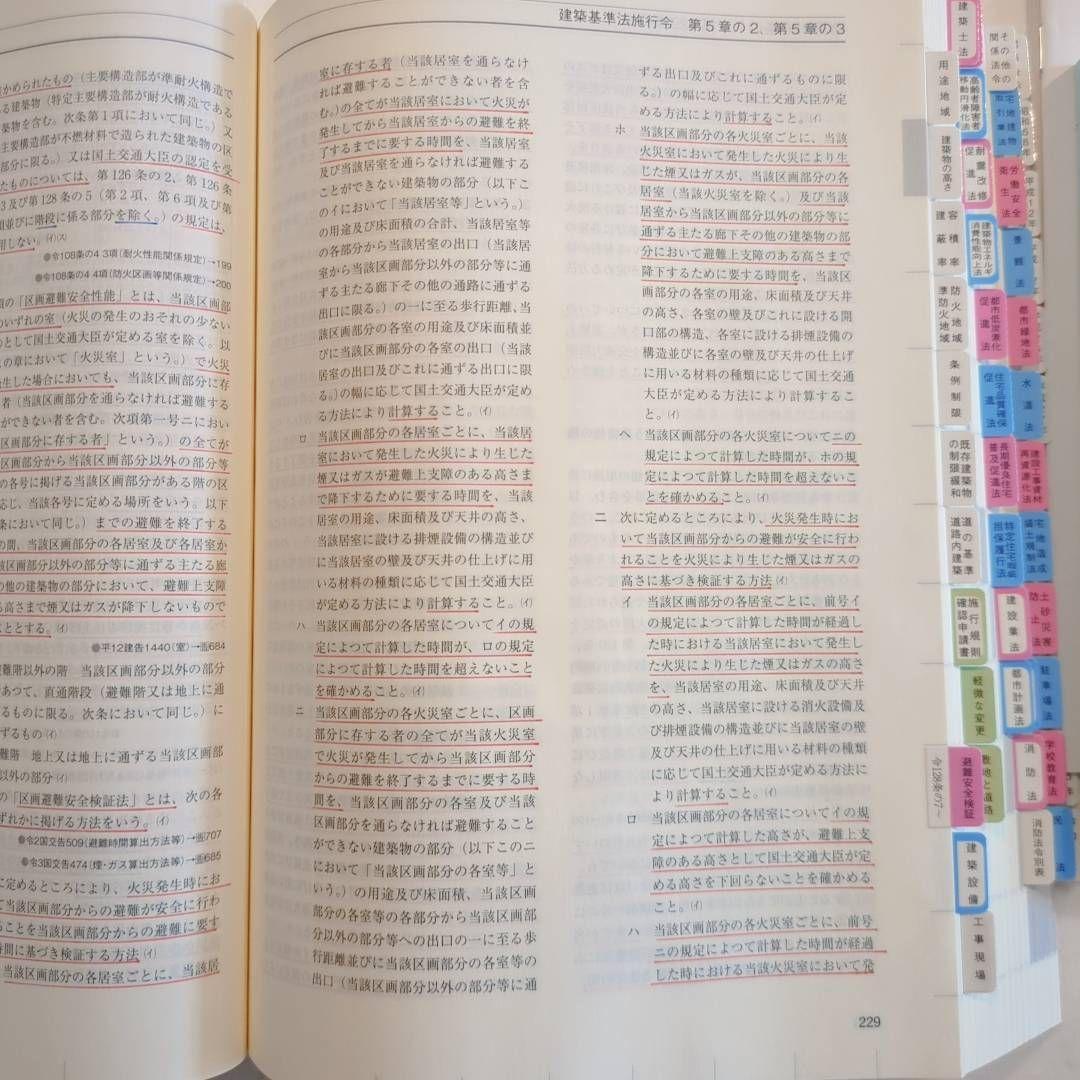 建築基準法施行令　第５章の２、第５章の３
かめられたもの（主要構造部が準耐火構造で
る建築物（特定主要構造部が耐火構造である
築物を含む。次条第１項において同じ。）又
主要構造部が不燃材料で造られた建築物の区
部分に限る。）又は国土交通大臣の認定を受
たものについては、第126条の２、第126条
３及び第128条の５（第２項、第６項及び第
項並びに階段に係る部分を除く。）の規定は、
用しない。(イ)(ス)
●令108条の４ ３項(耐火性能関係規定)→199
●令108条の４ ４項(防火区画等関係規定)→200
項の「区画避難安全性能」とは、当該区画部
のいずれの室（火災の発生のおそれの少ない
のとして国土交通大臣が定める室を除く。以
の章において「火災室」という。）で火災
発生した場合においても、当該区画部分に存
者（当該区画部分を通らなければ避難する
ができない者を含む。次項第一号ニにおい
区画部分に存する者」という。）の全てが
区画部分から当該区画部分以外の部分等
の各号に掲げる当該区画部分がある階の区
応じ、当該各号に定める場所をいう。以下
条において同じ。）までの避難を終了する
の間、当該区画部分の各居室及び各居室か
区画部分以外の部分等に通ずる主たる廊
の他の建築物の部分において、避難上支障
る高さまで煙又はガスが降下しないもので
ととする。(イ)
●平12建告1440(室)→告684
難階以外の階　当該区画部分以外の部分
あつて、直通階段（避難階又は地上に通
るものに限る。次条において同じ。）に
ずるもの(イ)
難階　地上又は地上に通ずる当該区画部
以外の部分(イ)
の「区画避難安全検証法」とは、次の各
ずれかに掲げる方法をいう。(イ)
●令2国交告509(避難時間算出方法等)→告707
●令3国交告474(煙・ガス算出方法等)→告685
に定めるところにより、火災発生時にお
て当該区画部分からの避難が安全に行わ
ることを当該区画部分からの避難に要す
時間に基づき検証する方法(イ)
当該区画部分の各居室ごとに、当該居
室に存する者（当該居室を通らなけ
れば避難することができない者を含
む。）の全てが当該居室において火災が
発生してから当該居室からの避難を終
了するまでに要する時間を、当該居室
及び当該居室を通らなければ避難する
ことができない建築物の部分（以下こ
のイにおいて「当該居室等」という。）
の用途及び床面積の合計、当該居室等
の各部分から当該居室の出口（当該居
室から当該区画部分以外の部分等に通
ずる主たる廊下その他の通路に通ずる
出口に限る。）の一に至る歩行距離、当
該区画部分の各室の用途及び床面積並
びに当該区画部分の各室の出口（当該
居室の出口及びこれに通ずる出口に限
る。）の幅に応じて国土交通大臣が定め
る方法により計算すること。(イ)
ロ　当該区画部分の各居室ごとに、当該居
室において発生した火災により生じた
煙又はガスが避難上支障のある高さま
で降下するために要する時間を、当該
居室の用途、床面積及び天井の高さ、
当該居室に設ける排煙設備の構造並び
に当該居室の壁及び天井の仕上げに用
いる材料の種類に応じて国土交通大臣
が定める方法により計算すること。(イ)
ハ　当該区画部分の各居室についてイの規
定によつて計算した時間が、ロの規定
によつて計算した時間を超えないこと
を確かめること。(イ)
ニ　当該区画部分の各火災室ごとに、区画
部分に存する者の全てが当該火災室
で火災が発生してから当該区画部分
からの避難を終了するまでに要する時
間を、当該区画部分の各室及び当該区
画部分を通らなければ避難することが
できない建築物の部分（以下このニに
おいて「当該区画部分の各室等」と
いう。）の用途及び床面積、当該区画部
分の各室等の各部分から当該区画部
分以外の部分等への出口の一に至る歩
行距離並びに当該区画部分の各室等の
出口（当該区画部分以外の部分等に通
ずる出口及びこれに通ずるものに限
る。）の幅に応じて国土交通大臣が定
める方法により計算すること。(イ)
ホ　当該区画部分の各火災室ごとに、当該
火災室において発生した火災により生
じた煙又はガスが、当該区画部分の各
居室（当該火災室を除く。）及び当該
居室から当該区画部分以外の部分等に
通ずる主たる廊下その他の建築物の部
分において避難上支障のある高さまで
降下するために要する時間を、当該区
画部分の各室の用途、床面積及び天井
の高さ、各室の壁及びこれに設ける開
口部の構造、各室に設ける排煙設備の
構造並びに各室の壁及び天井の仕上げ
に用いる材料の種類に応じて国土交通
大臣が定める方法により計算するこ
と。(イ)
ヘ　当該区画部分の各火災室についてニの
規定によつて計算した時間が、ホの規
定によつて計算した時間を超えないこ
とを確かめること。(イ)
二　次に定めるところにより、火災発生時にお
いて当該区画部分からの避難が安全に行わ
れることを火災により生じた煙又はガスの
高さに基づき検証する方法(イ)
イ　当該区画部分の各居室ごとに、前号イ
の規定によつて計算した時間が経過し
た時における当該居室において発生し
た火災により生じた煙又はガスの高さ
を、当該居室の用途、床面積及び天井
の高さ、当該居室に設ける消火設備及
び排煙設備の構造並びに当該居室の壁
及び天井の仕上げに用いる材料の種類
に応じて国土交通大臣が定める方法に
より計算すること。(イ)
ロ　当該区画部分の各居室についてイの規
定によつて計算した高さが、避難上支
障のある高さとして国土交通大臣が定
める高さを下回らないことを確かめる
こと。(イ)
ハ　当該区画部分の各火災室ごとに、前号
ニの規定によつて計算した時間が経過
した時における当該火災室において発
229
建築士法
用途地域
高齢者障害者移動円滑化法
建築物の高さ
耐震改修促進法
容積率
建蔽率
建築物エネルギー消費性能向上法
防火地域
準防火地域
都市低炭素化促進法
条例制限
住宅品質確保促進法
既存建築物の制限緩和
長期優良住宅普及促進法
道の基準
道路内建築
特定住宅瑕疵担保履行法
施行規則
確認申請書
建設業法
軽微な変更
都市計画法
敷地と道路
消防法
避難安全検証
令128条の7〜
建築設備
工事現場
その他の関係法令
宅地建物取引業法
労働安全衛生法
景観法
都市緑地法
水道法
建設工事資材再資源化法
宅地造成
盛土規制法
土砂災害防止法
駐車場法
学校教育法
民法
消防法令別表